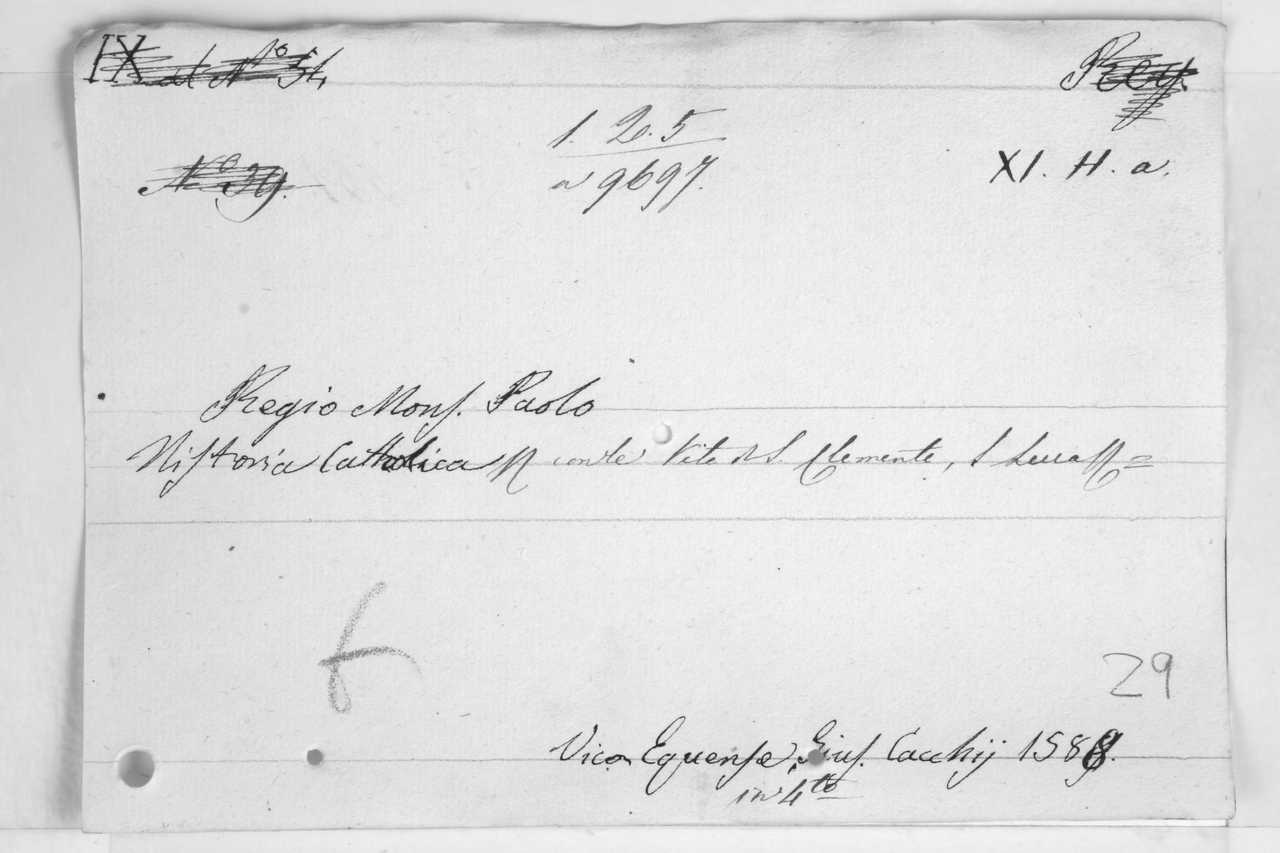 IX ad N° 54
Reg.
N° 39.
1. 2. 5
a 9697.
XI. H. a.
Regio Monſ. Paolo
Hiſtoria Catholica con le Vite di S. Clemente, S Luca =
29
Vico Equenſe, Giuſ. Cacchij 1588.
in 4to